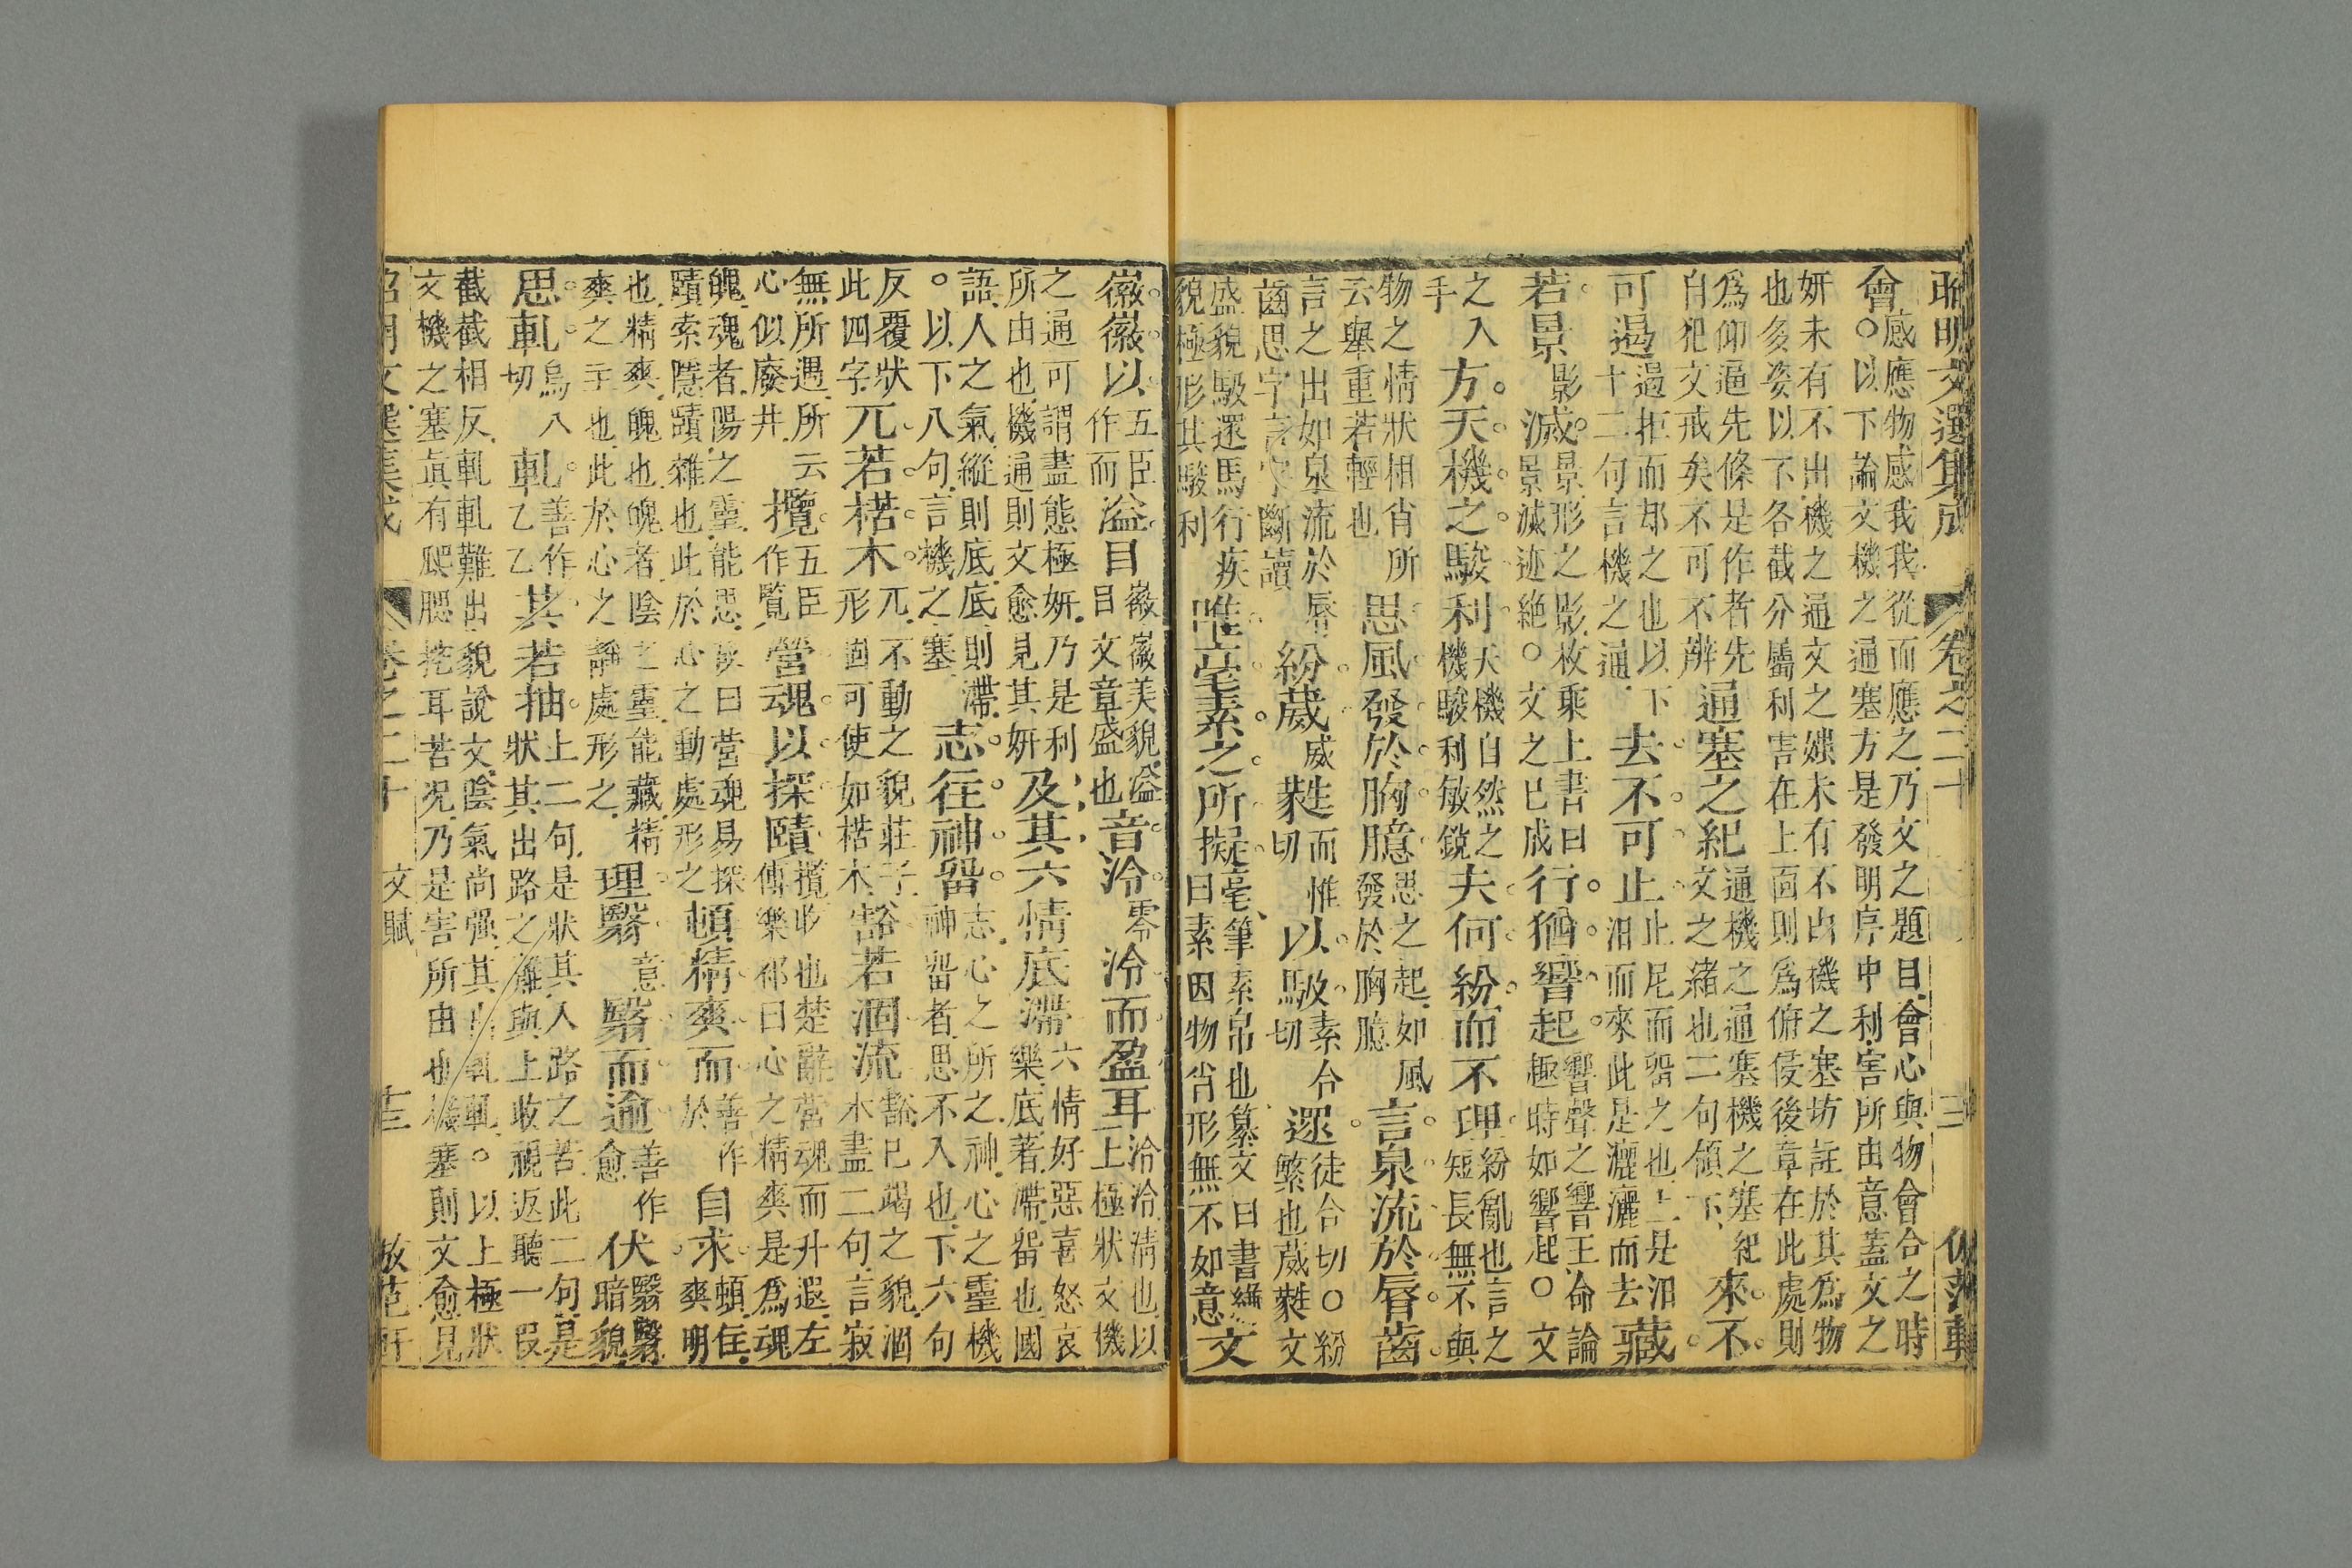 昭明文選集成 卷之二十 三 仿范軒
會
感應物感我我從而應之乃文之題目會心與物會合之時
○以下論文機之通塞方是發明序中利害所由意蓋文之
妍未有不出機之通文之媸未有不由機之塞坊註於其爲物
也多姿以下各截分屬利害在上面則爲俯侵後章在此處則
爲仰逼先條是作者先
自犯文戒矣不可不辨
通塞之紀
通機之通塞機之塞紀
文之緒也二句領下
來不
可遏
遏拒而却之也以下
十二句言機之通
去不可止
止尼而畱之也上是汨
汨而來此是灑灑而去
藏
若景影滅
景形之影枚乘上書曰
景滅迹絶○文之已成
行猶響起
響聲之響王命論
趣時如響起○文
之入
手
方天機之駿利
天機自然之
機駿利敏鏡
夫何紛而不理
紛亂也言之
短長無不與
物之情狀相肖所
云舉重若輕也
思風發於胸臆
思之起如風
發於胸臆
言泉流於唇齒
言之出如泉流於唇
齒思字言字斷讀
紛葳威蕤而惟切以馺素合切遝徒合切○紛
繁也葳蕤文
盛貌馺遝馬行疾
貌極形其駿利
唯毫素之所擬
毫筆素帛也纂文曰書縑
曰素因物肖形無不如意
文
徽徽以
五臣
作而
溢目
徽徽美貌溢
目文章盛也
音泠零泠而盈耳
泠泠清也以
上極狀文機
之通可謂盡態極妍乃是利
所由也機通則文愈見其妍
及其六情底滯
六情好惡喜怒哀
樂底著滯畱也國
語人之氣縱則底底則滯
○以下八句言機之塞
志往神畱
志心之所之神心之靈機
神畱者思不入也下六句
反覆狀
此四字
兀若枯木
兀不動之貌莊子
形固可使如槁木
豁若涸流
豁已竭之貌涸
木盡二句言寂
無所遇所云
心似廢井
攬
五臣
作覽
營魂以探賾
攬收也楚辭營魂而升遐左
傳樂祁曰心之精爽是爲魂
魄魂者陽之靈能思故曰營魂易探
賾索隱賾雜也此於心之動處形之
頓精爽而
善作
於
自求
頓住
爽明
也精爽魄也魄者陰之靈能藏精
爽之主也此於心之靜處形之
理翳意翳而逾
善作
愈
伏
翳翳
暗貌
思軋烏八切軋
善作
乙乙
其若抽
上二句是狀其入路之苦此二句是
狀其出路之難與上收視返聽一段
截截相反軋軋難出貌說文陰氣尚强其出軋軋○以上極狀
文機之塞眞有爬腮挖耳苦况乃是害所由也機塞則文愈見
昭明文選集成 卷之二十 文賦 十三 仿范軒